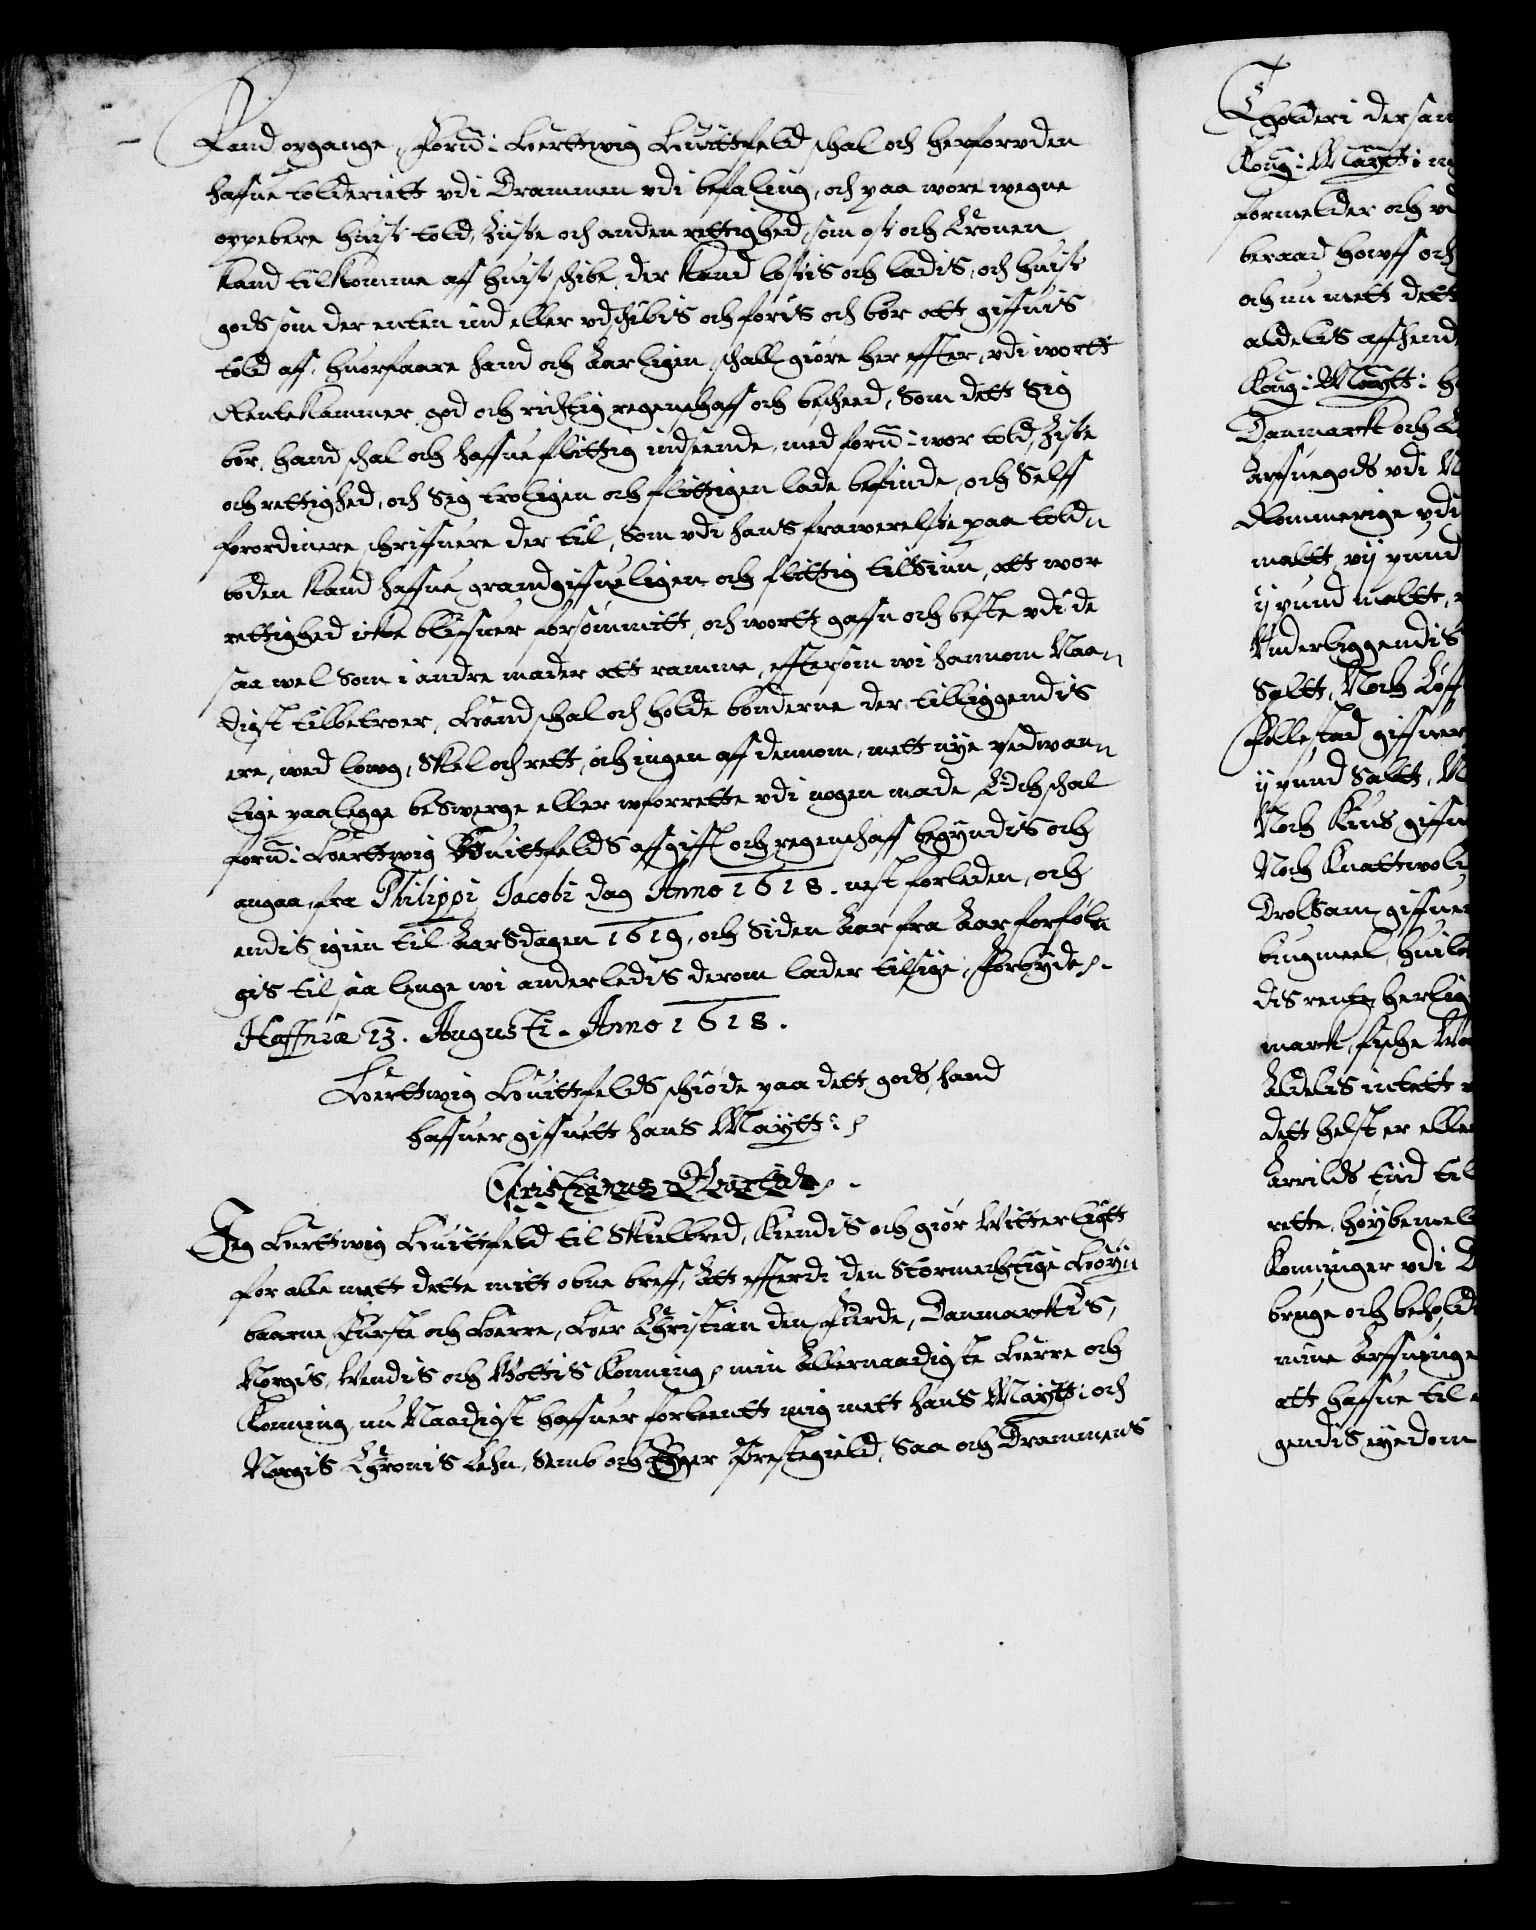 Kand opgange, Forn: Herttwig Huittfeld schal och herforvden
haffue tolderiett vdi Drammen vdi befaling, och paa wore wegne
oppebere huis told, Ziise och anden rettighed, som oß och Cronen
kand tilkomme aff huis schibe, der kand loßis och ladis, och huis
gods som der enten ind eller vdschibis och føris och bør att giffuis
told aff, huorfaare hand och Aarligen schall giøre her effter, vdi wortt
Rentekammer god och richtig regenschaff och bescheed, Som dett Sig
bør, hand schal och haffue flittig indseende, med forn: wor told, Ziise
och rettighed, och Sig troligen och flittigen lade befinde, och Selff
forordinere schriffuere der til, Som vdi hans frawerelse paa told
boden kand haffue grandgiffueligen och flittig tilsiun, att wor
rettighed icke bliffuer forsømmitt, och wortt gaffn och beste vdi de
saa wel som i andre mader att ramme, efftersom wi hannom Naa
digst tilbetroer, Hand schal och holde bønderne der tilliggendis
ere, wed lowg, Skel och rett, och ingen aff dennom, mett nye vsedwan
lige paalegge beswerge eller wforrette vdi nogen made Och schal
forn: Herttwig Huittfelds affgifft och regenschaff begyndis och
angaa, fra Philippi Jacobi dag Anno 1618. nest forleden, och
endis igien til Aarsdagen 1619, och Siden Aar fra Aar forføl
gis til saa lenge wi anderledis derom lader tilsige, Forbydes.
Haffniæ 13. Augusti. Anno 1618.
Herttwig Huittfelds schiøde paa dett gods, hand
haffuer giffuett hans Maytt:
Christianus Quartus.
Jeg Herttwig Huittfeld til Skulbred, Kiendis och giør Witterligtt
for alle mett dette mitt obne breff, Att efferdi den Stormechtige Høy
baarne Fürste och Herre, Her Christian den Fierde, Danmarckis,
Norgis, Wendis och Gottis Konning, min Allernaadigste Herre och
Konning, nu Naadigst haffuer forleentt mig mett hans Maytt: och
Norgis Chronis Lehn, Semb och Eger Prestegield, Saa och Drammens
Tholderi der sam
Kong: Maytt: m
formelder och vd
beraad howff och
och nu mett dett
aldelis affhend
Kong: Maytt: h
Danmarck och
Arffuegods vdi N
Rommerige vdi
maltt vij pund
ij pund maltt,
Vnderliggendis
Saltt, Noch Løff
Follestad giffuer
ij pund Saltt, N
Noch Kius giffu
Noch Knattwol
Drolsam giffuer
bugmeel, huil
dis rente, herlig
marck, fische Wa
Aldelis intett
dett helst er eller
Arrilds tiid til
rette, høybemel
Konninger vdi D
bruge och behold
mine Arffuinge
att haffue til
gendis eyedom